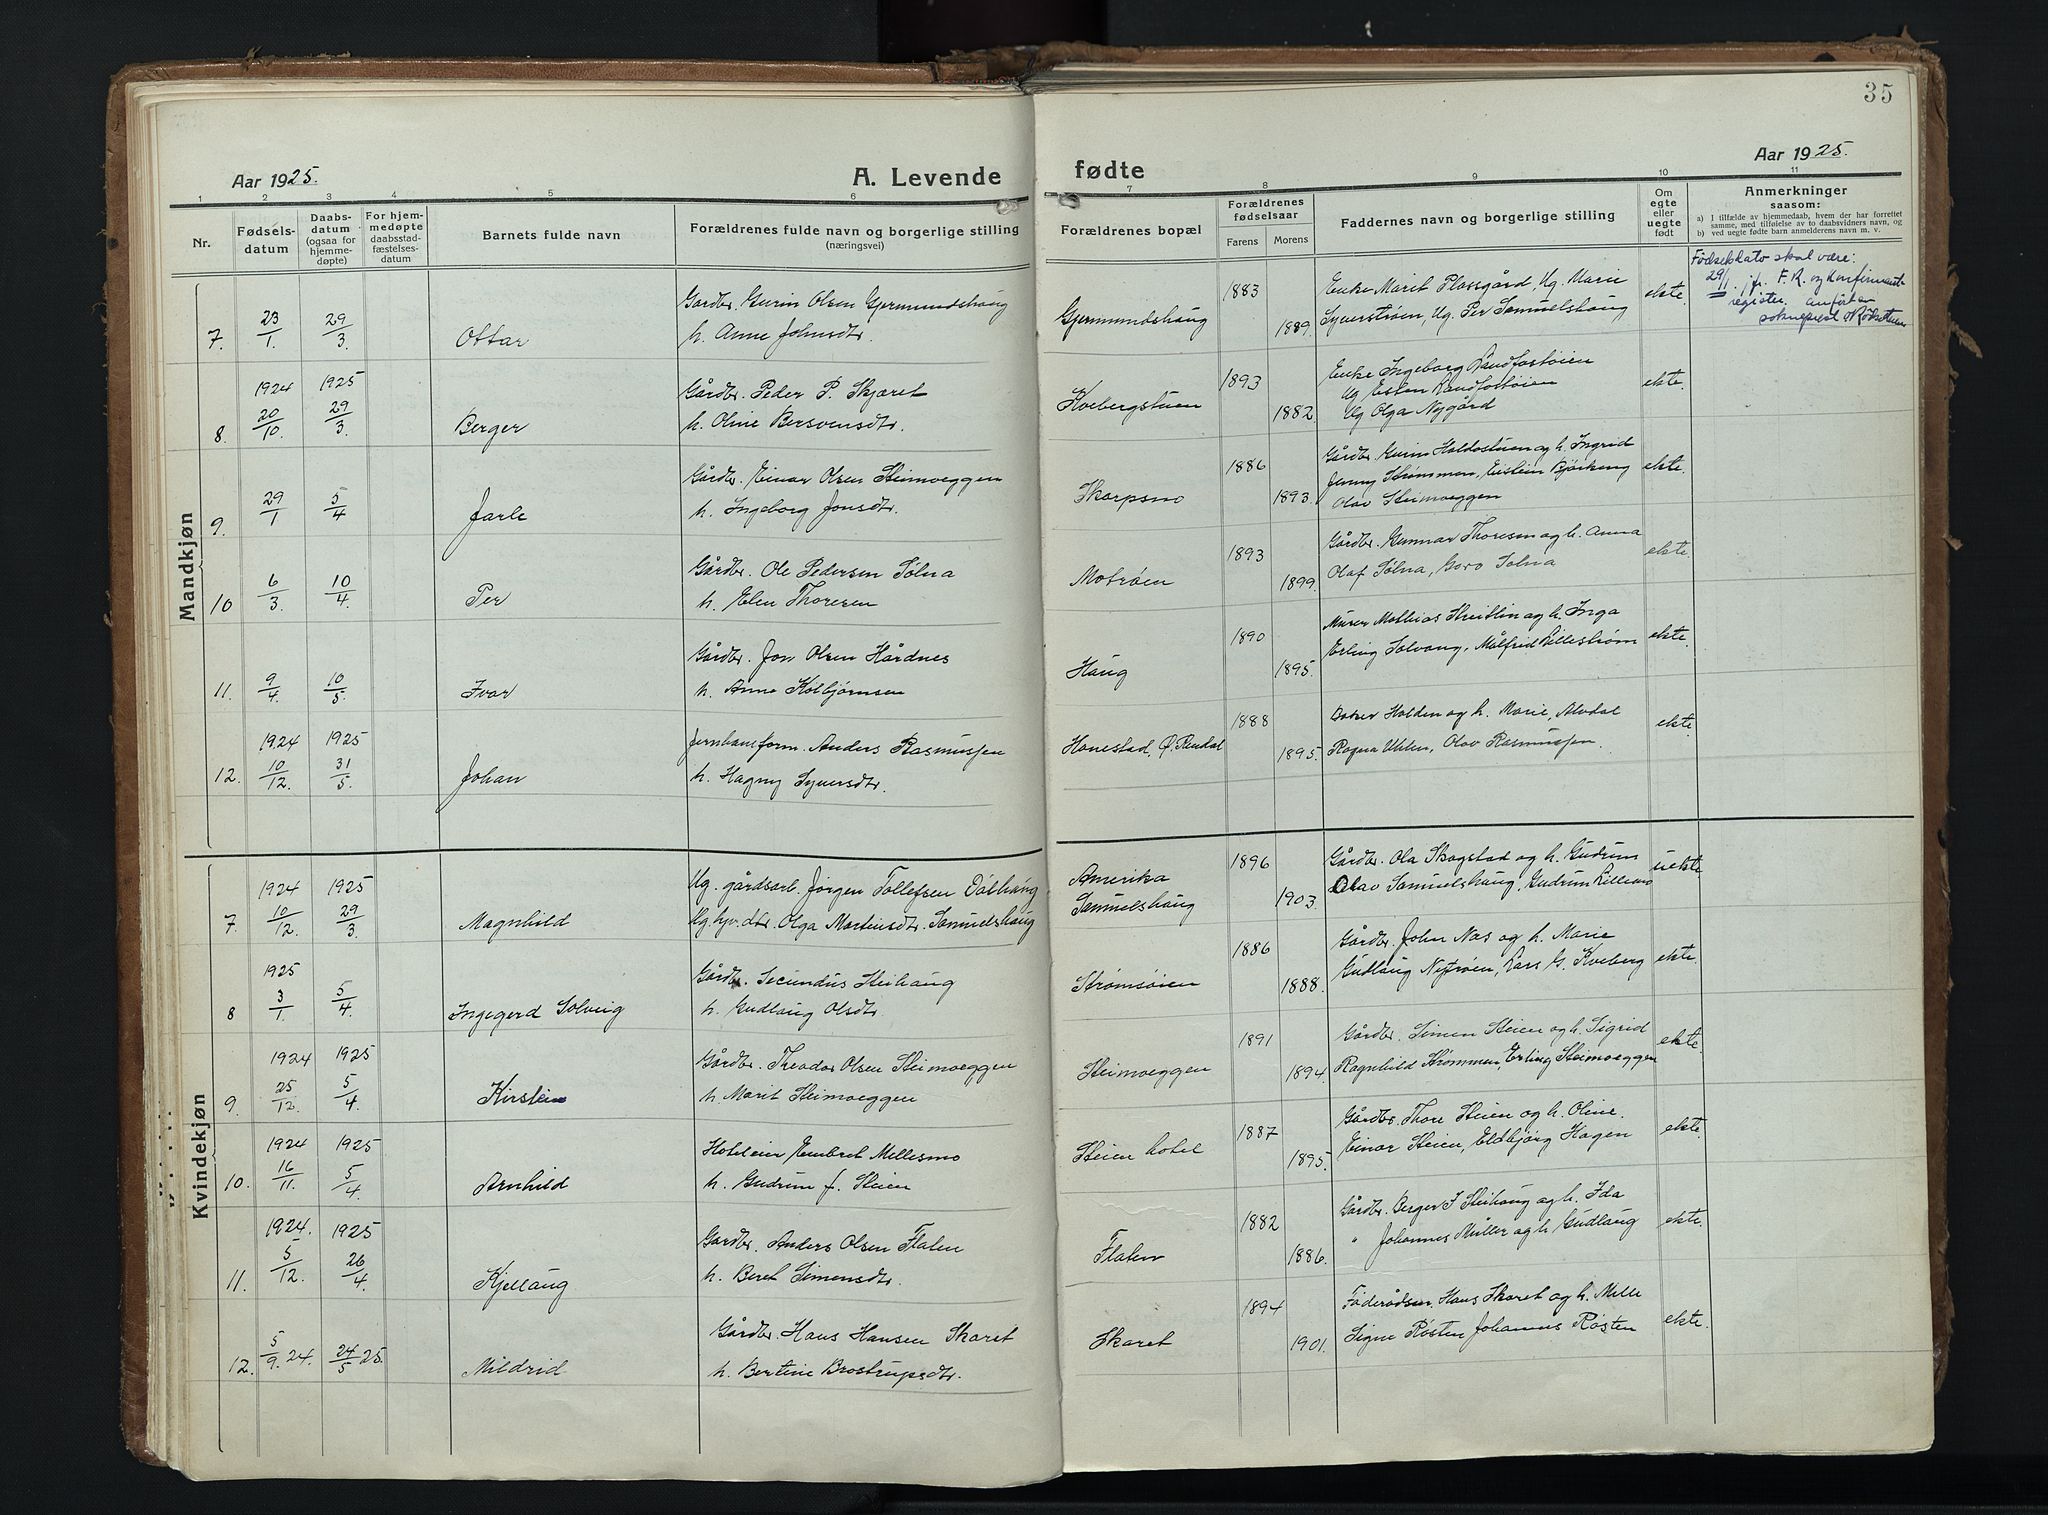 35
Aar 1925.
A. Levende
fødte
Aar 1925.
1 2 3 4 5 6 7 8 9 10 11
Nr.
Fødsels-
datum
Daabs-
datum
(ogsaa for
hjemme-
døpte)
For hjem-
medøpte
daabsstad-
fæstelses-
datum
Barnets fulde navn
Forældrenes fulde navn og borgerlige stilling
(næringsvei)
Forældrenes bopæl
Forældrenes
fødselsaar
Farens Morens
Faddernes navn og borgerlige stilling
Om
egte
eller
uegte
født
Anmerkninger
saasom:
a) I tilfælde av hjemmedaab, hvem der har forrettet
samme, med tilføielse av to daabsvidners navn, og
b) ved uegte fødte barn anmelderens navn m. v.
Mandkjøn
7. 23/1 29/3 Ottar
Gårdbr. Gurin Olsen Gjermundshaug
h. Anne Johnsdtr.
Gjermundshaug
1883
1889.
Enke Marit Plassgård, Ug. Marie
Syverstrøen, Ug. Per Samuelshaug
ekte.
Fødselsdato skal være:
29/1. jfr. F.R. og konfirmant-
register. anført av
sokneprest
8. 1924 20/10. 1925 29/3. Berger
Gårdbr. Peder P. Skjæret
h. Oline Bersvensdtr.
Kvebergstuen
1893
1882.
Enke Ingeborg Randfostøien
Ug Esten Randfostøien
Ug Olga Nygård
ekte.
9. 29/1 5/4 Jarle
Gårdbr. Einar Olsen Steimoeggen
h. Ingeborg Jonsdtr.
Skarpsno
1886
1893.
Gårdbr. Gurin Haldostuen og h. Ingrid
Jenny Strømmen, Eistein Bjørkeng
Olav Steimoeggen
ekte.
10 6/3. 10/4. Per
Gårdbr. Ole Pedersen Sølna
h. Elen Thoresen
Motrøen
1893
1899.
Gårdbr. Gunnar Thoresen og h. Anna
Olaf Sølna, Goro Solna
ekte.
11. 9/4 10/5. Ivar
Gårdbr. Jon Olsen Hårdnes
h. Anne Kolbjørnsen
Haug
1890
1895.
Murer Mathias Streitlin og h. Inga
Erling Solvang, Målfrid Lillestrøm
ekte.
12. 1924 10/12. 1925 31/5. Johan
Jernbaneform. Anders Rasmussen
h. Hagny Syversdtr.
Hanestad, Ø. Rendal
1888
1895.
Baker Holden og h. Marie, Alvdal
Ragna Uhlen, Olav Rasmussen.
ekte.
Kvindekjøn
7. 1924 10/12. 1925 29/3. Magnhild
Ug. gårdsarb. Jørgen Tollefsen Dølhaug
Ug. hjv. dtr. Olga Martinsdtr. Samuelshaug
Amerika
Samuelshaug
1896
1903.
Gårdbr. Ola Skogstad og h. Gudrun
Olav Samuelshaug, Gudrun Lilleno
uekte.
8 1925 3/1. 5/4. Ingegerd Solveig
Gårdbr. Secundus Steihaug
h. Gudlaug Olsdtr.
Strømsøien
1886
1888.
Gårdbr. John Næs og h. Marie
Gudlaug Nytrøen, Lars G. Kveberg
ekte.
9. 1924 25/12. 1925 5/4. Kirsten
Gårdbr. Theodor Olsen Steimoeggen
h. Marit Steimoeggen
Steimoeggen
1891
1894.
Gårdbr. Simen Steien og h. Sigrid
Ragnhild Strømmen, Erling Steimoeggen
ekte.
10. 1924 16/11. 1925 5/4. Arnhild
Hoteleier Embret Mellesmo
h. Gudrun f. Steien
Steien hotel
1887
1895.
Gårdbr. Thore Steien og h. Oline.
Einar Steien, Eldbjørg Hagen
ekte.
11. 1924. 5/12. 1925 26/4. Kjellaug
Gårdbr. Anders Olsen Flaten
h. Beret Simensdtr.
Flaten
1882
1886.
Gårdbr. Berger I Steihaug og h. Ida
" Johannes Müller og h. Gudlaug
ekte.
12. 5/9. 24. 24/5 25. Mildrid
Gårdbr. Hans Hansen Skaret
h. Bertine Brostrupsdtr.
Skaret
1894
1901.
Føderådsm. Hans Skaret og h. Mille
Signe Røsten Johannes Røsten
ekte.